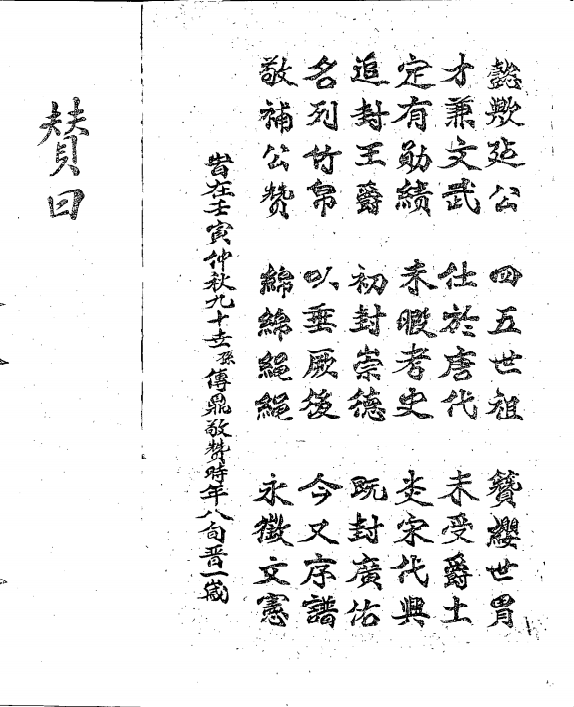 懿歟延公 四五世祖 簪纓世胄
才兼文武 仕於唐代 未受爵土
定有勛績 未暇考史 炎宋代興
追封王爵 初封崇德 既封廣佑
名列竹帛 以垂厥後 今又序譜
敬補公贊 綿綿繩繩 永徵文憲
旹在壬寅仲秋九十世孫傳鼎敬贊時年八旬晋一歲
贊曰